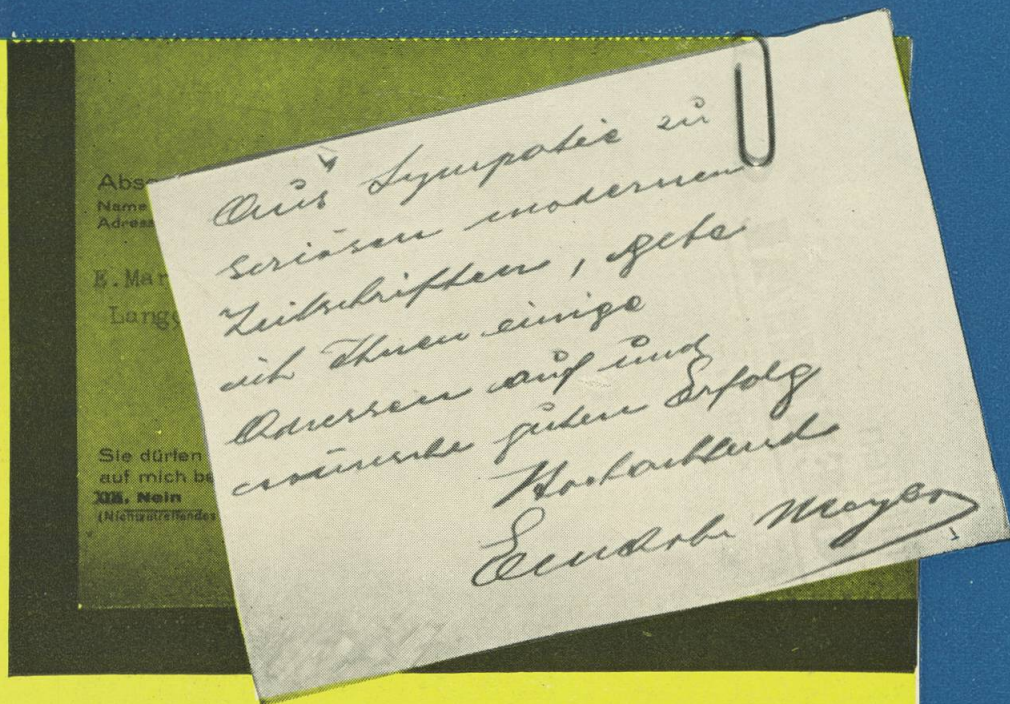 Abse
Name
Adress
E.Mar
Lang
Sie dürfen
auf mich be
Nein
(Nichtzutreffendes
Aus Sympatie zu
seriösen modernen
Zeitschriften, gebe
ich Ihnen einige
Adressen auf und
wünsche guten Erfolg
Hochachtend
Meyer